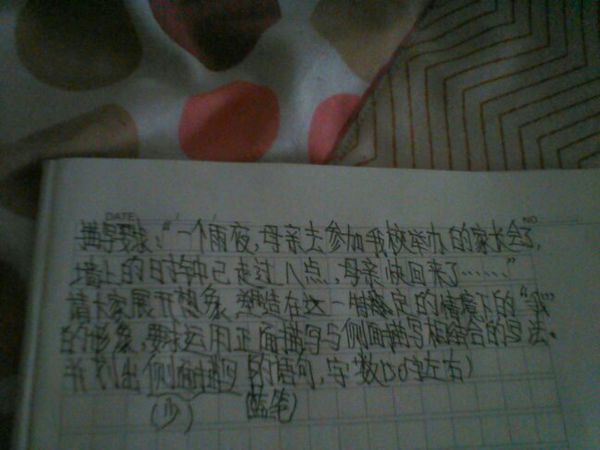 DATE / /
NO.
描写要求："一个雨夜,母亲去参加我校举办的家长会了,
墙上的时钟已走过八点,母亲快回来了……"
请大家展开想象,塑造在这一特定的情境下的"我"
的形象,要求运用正面描写与侧面描写相结合的写法,
并划出侧面描写的语句,字数150字左右)
(少)